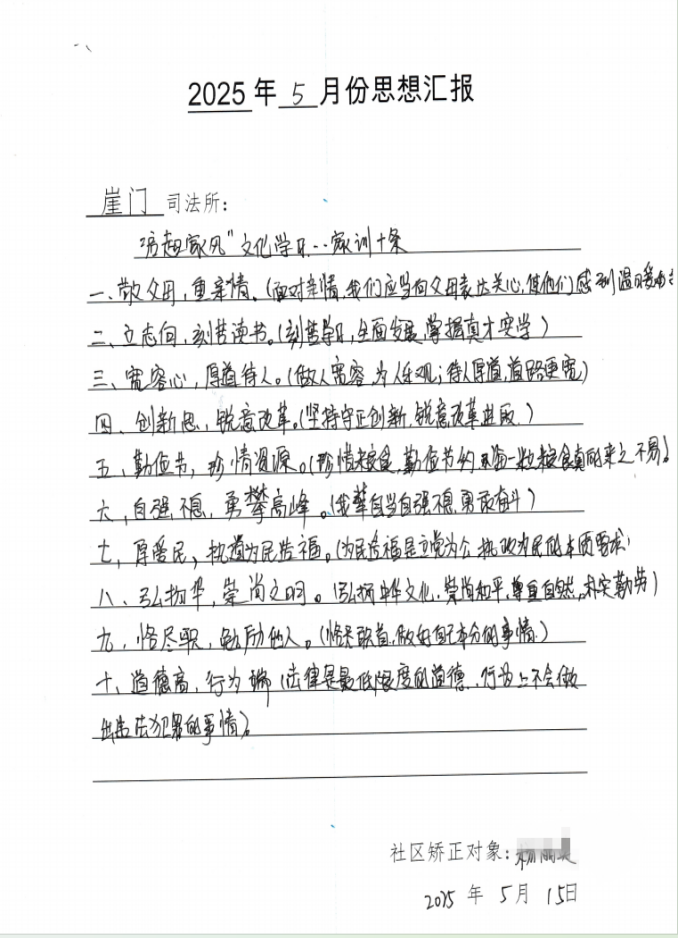 2025年 5 月份思想汇报
崖门 司法所：
家风"文化学习··家训十条
一、敬父母，重亲情。（面对亲情，我们应当向父母表达关心，使他们感到温暖
二、立志向，刻苦读书。（刻苦学习，全面发展，掌握真才实学）
三、宽容心，厚道待人。（做人宽容，为人乐观；待人厚道，道路更宽）
四、创新思，锐意改革。（坚持守正创新，锐意改革进取。）
五、勤俭节，珍惜资源。（珍惜粮食，勤俭节约，一粒粮食真的来之不易！
六，自强不息，勇攀高峰。（我辈自当自强不息，勇敢奋斗）
七，厚爱民，执道为民造福。（为民造福是立党为公，执政为民的本质要求
八、弘扬华，崇尚文明。（弘扬中华文化，崇尚和平，尊重自然，求实勤劳）
九、恪尽职，勉励他人。（恪尽职责，做好自己本分的事情。）
十、道德高，行为端（法律是最低限度的道德，行为上不会做
出违法犯罪的事情）。
社区矫正对象：
2025 年 5 月 15日